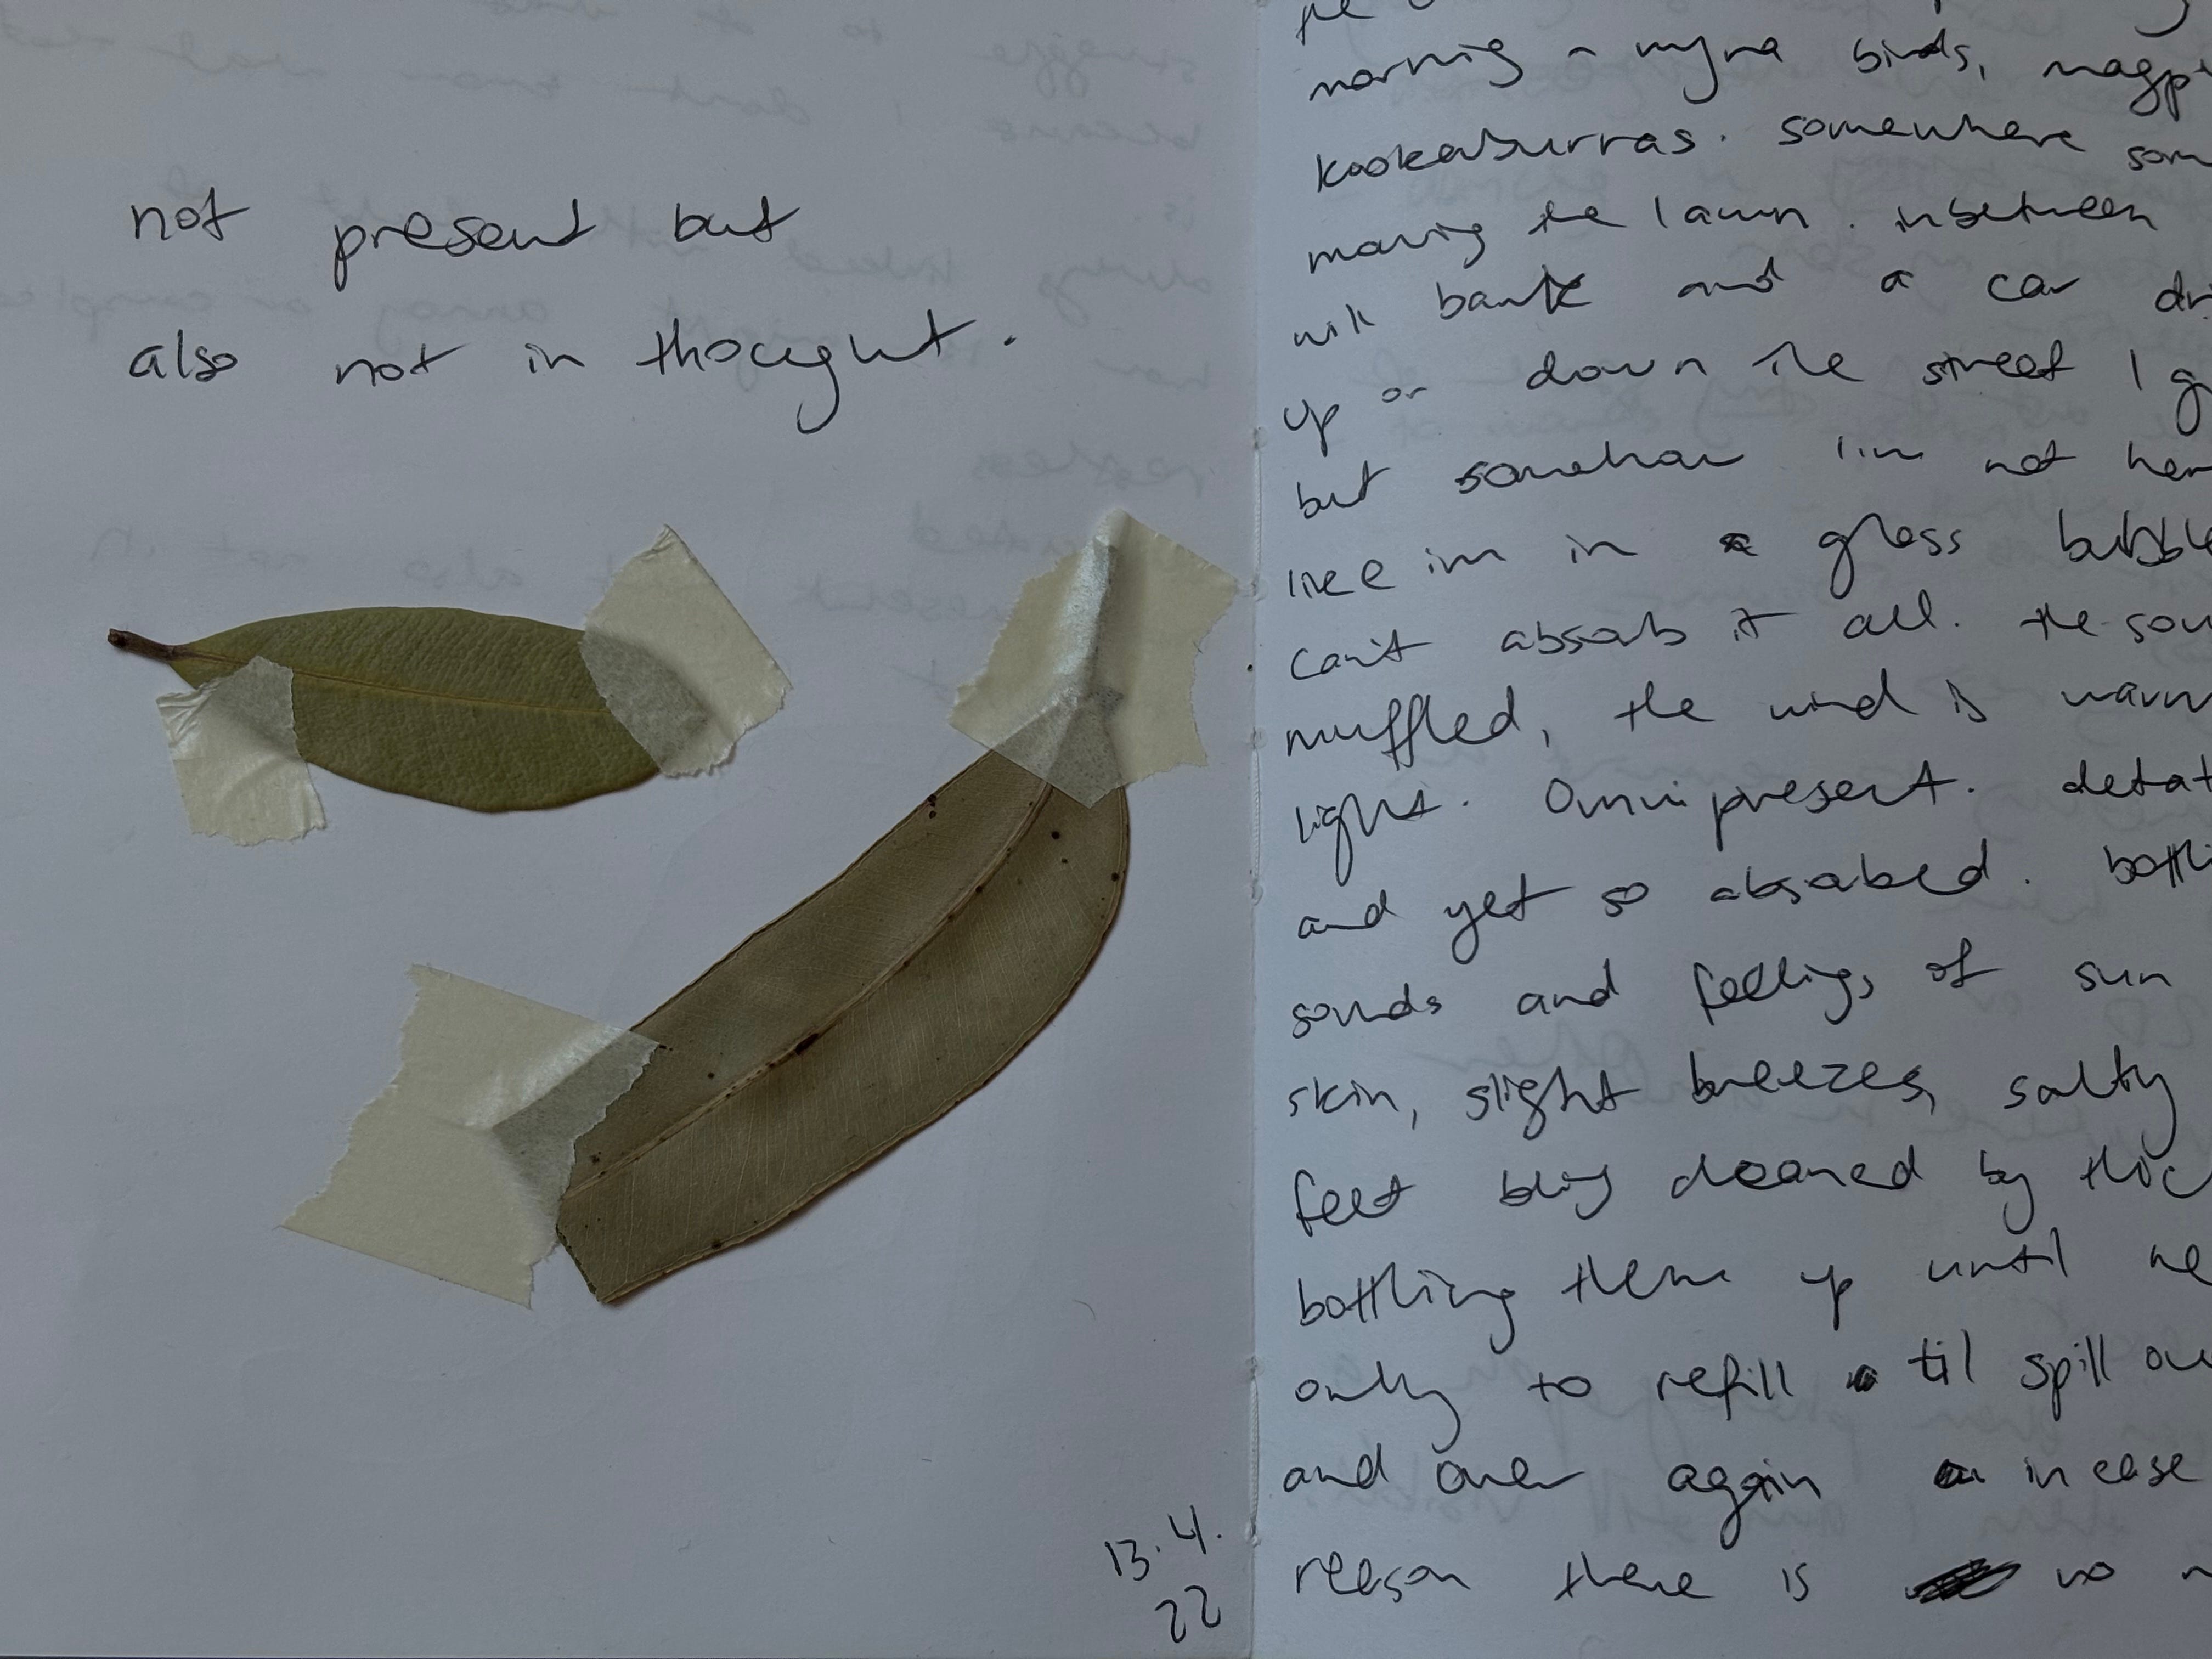 not present but
also not in thought.
13.4.
22
morning - myna birds, magp
kookaburras. somewhere som
mowing the lawn. inbetween
will bark and a car dri
up or down the street I g
but somehow I'm not her
like im in a glass bubble
can't absorb it all. the sou
muffled, the wind is warm
light. Omnipresent. detat
and yet so absorbed. bottli
sounds and feelings of sun
skin, slight breezes, salty
feet being cleaned by thic
bottling them up until ne
only to refill til spill ov
and over again incase
reason there is no